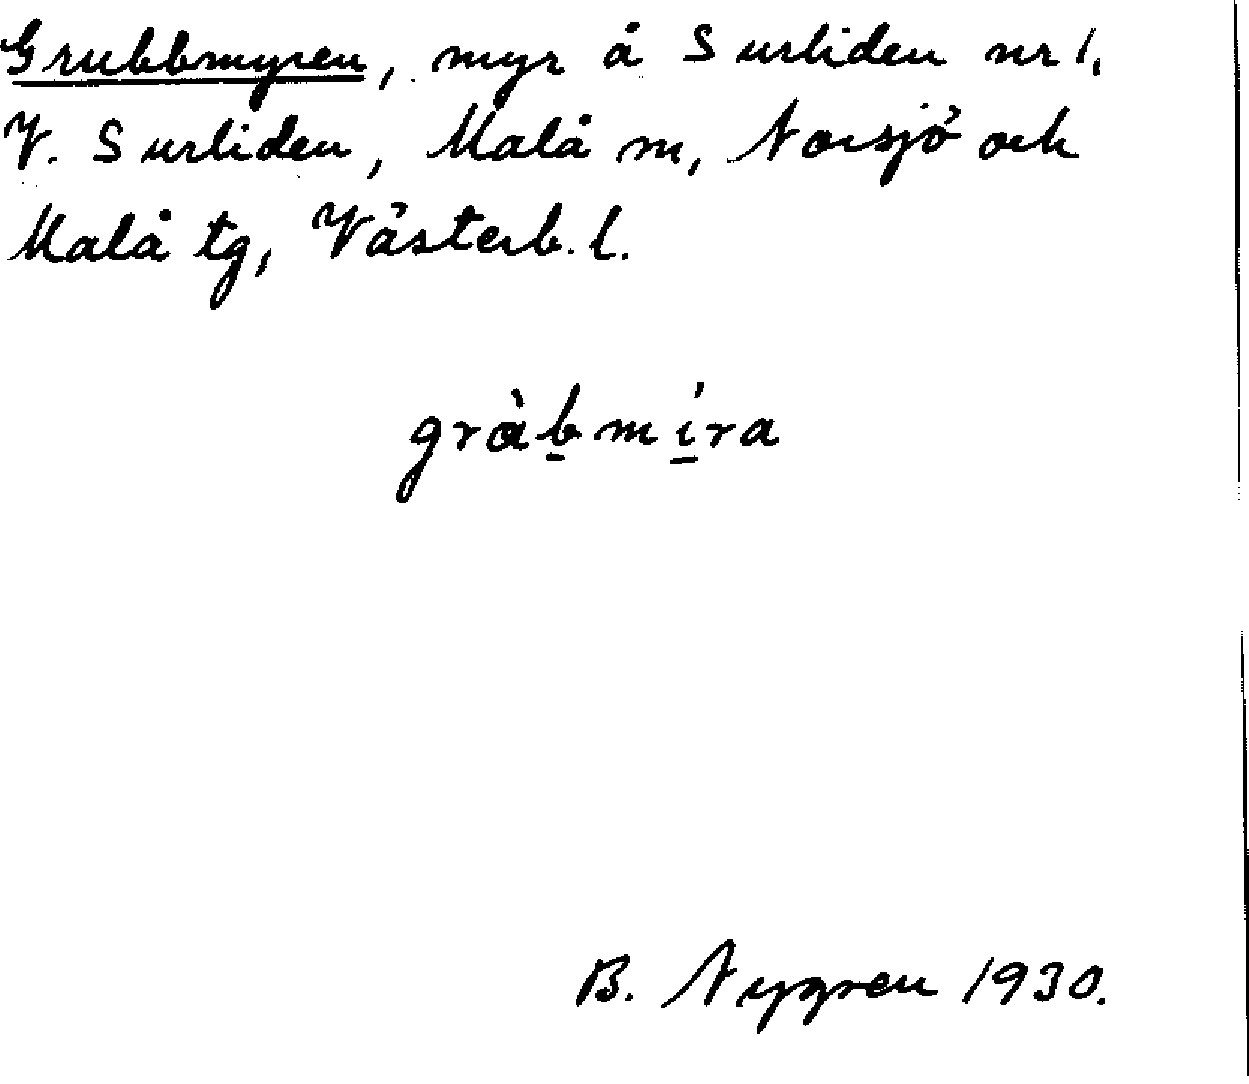 Grubbmyren, myr å Surliden nr 1,
V. Surliden, Malå m, Norsjö och
Malå tg, Västerb. l.
gràb̲mí̲ra
B. Nygren 1930.